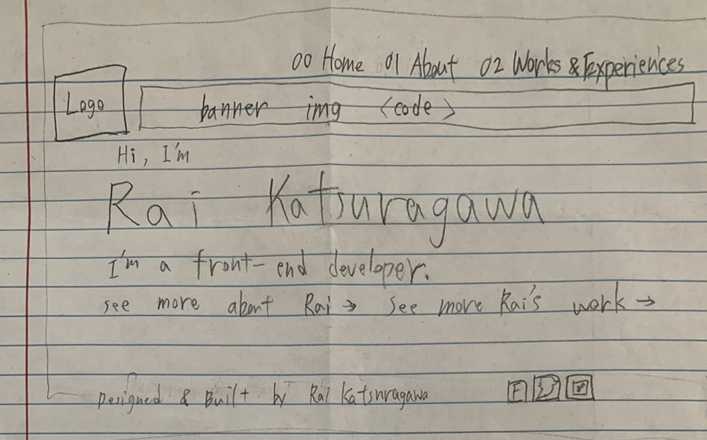 00 Home 01 About 02 Works & Experiences
Logo
banner img <code>
Hi, I'm
Rai Katsuragawa
I'm a front-end developer.
see more about Rai → see more Rai's work →
Designed & Built by Rai Katsuragawa
F